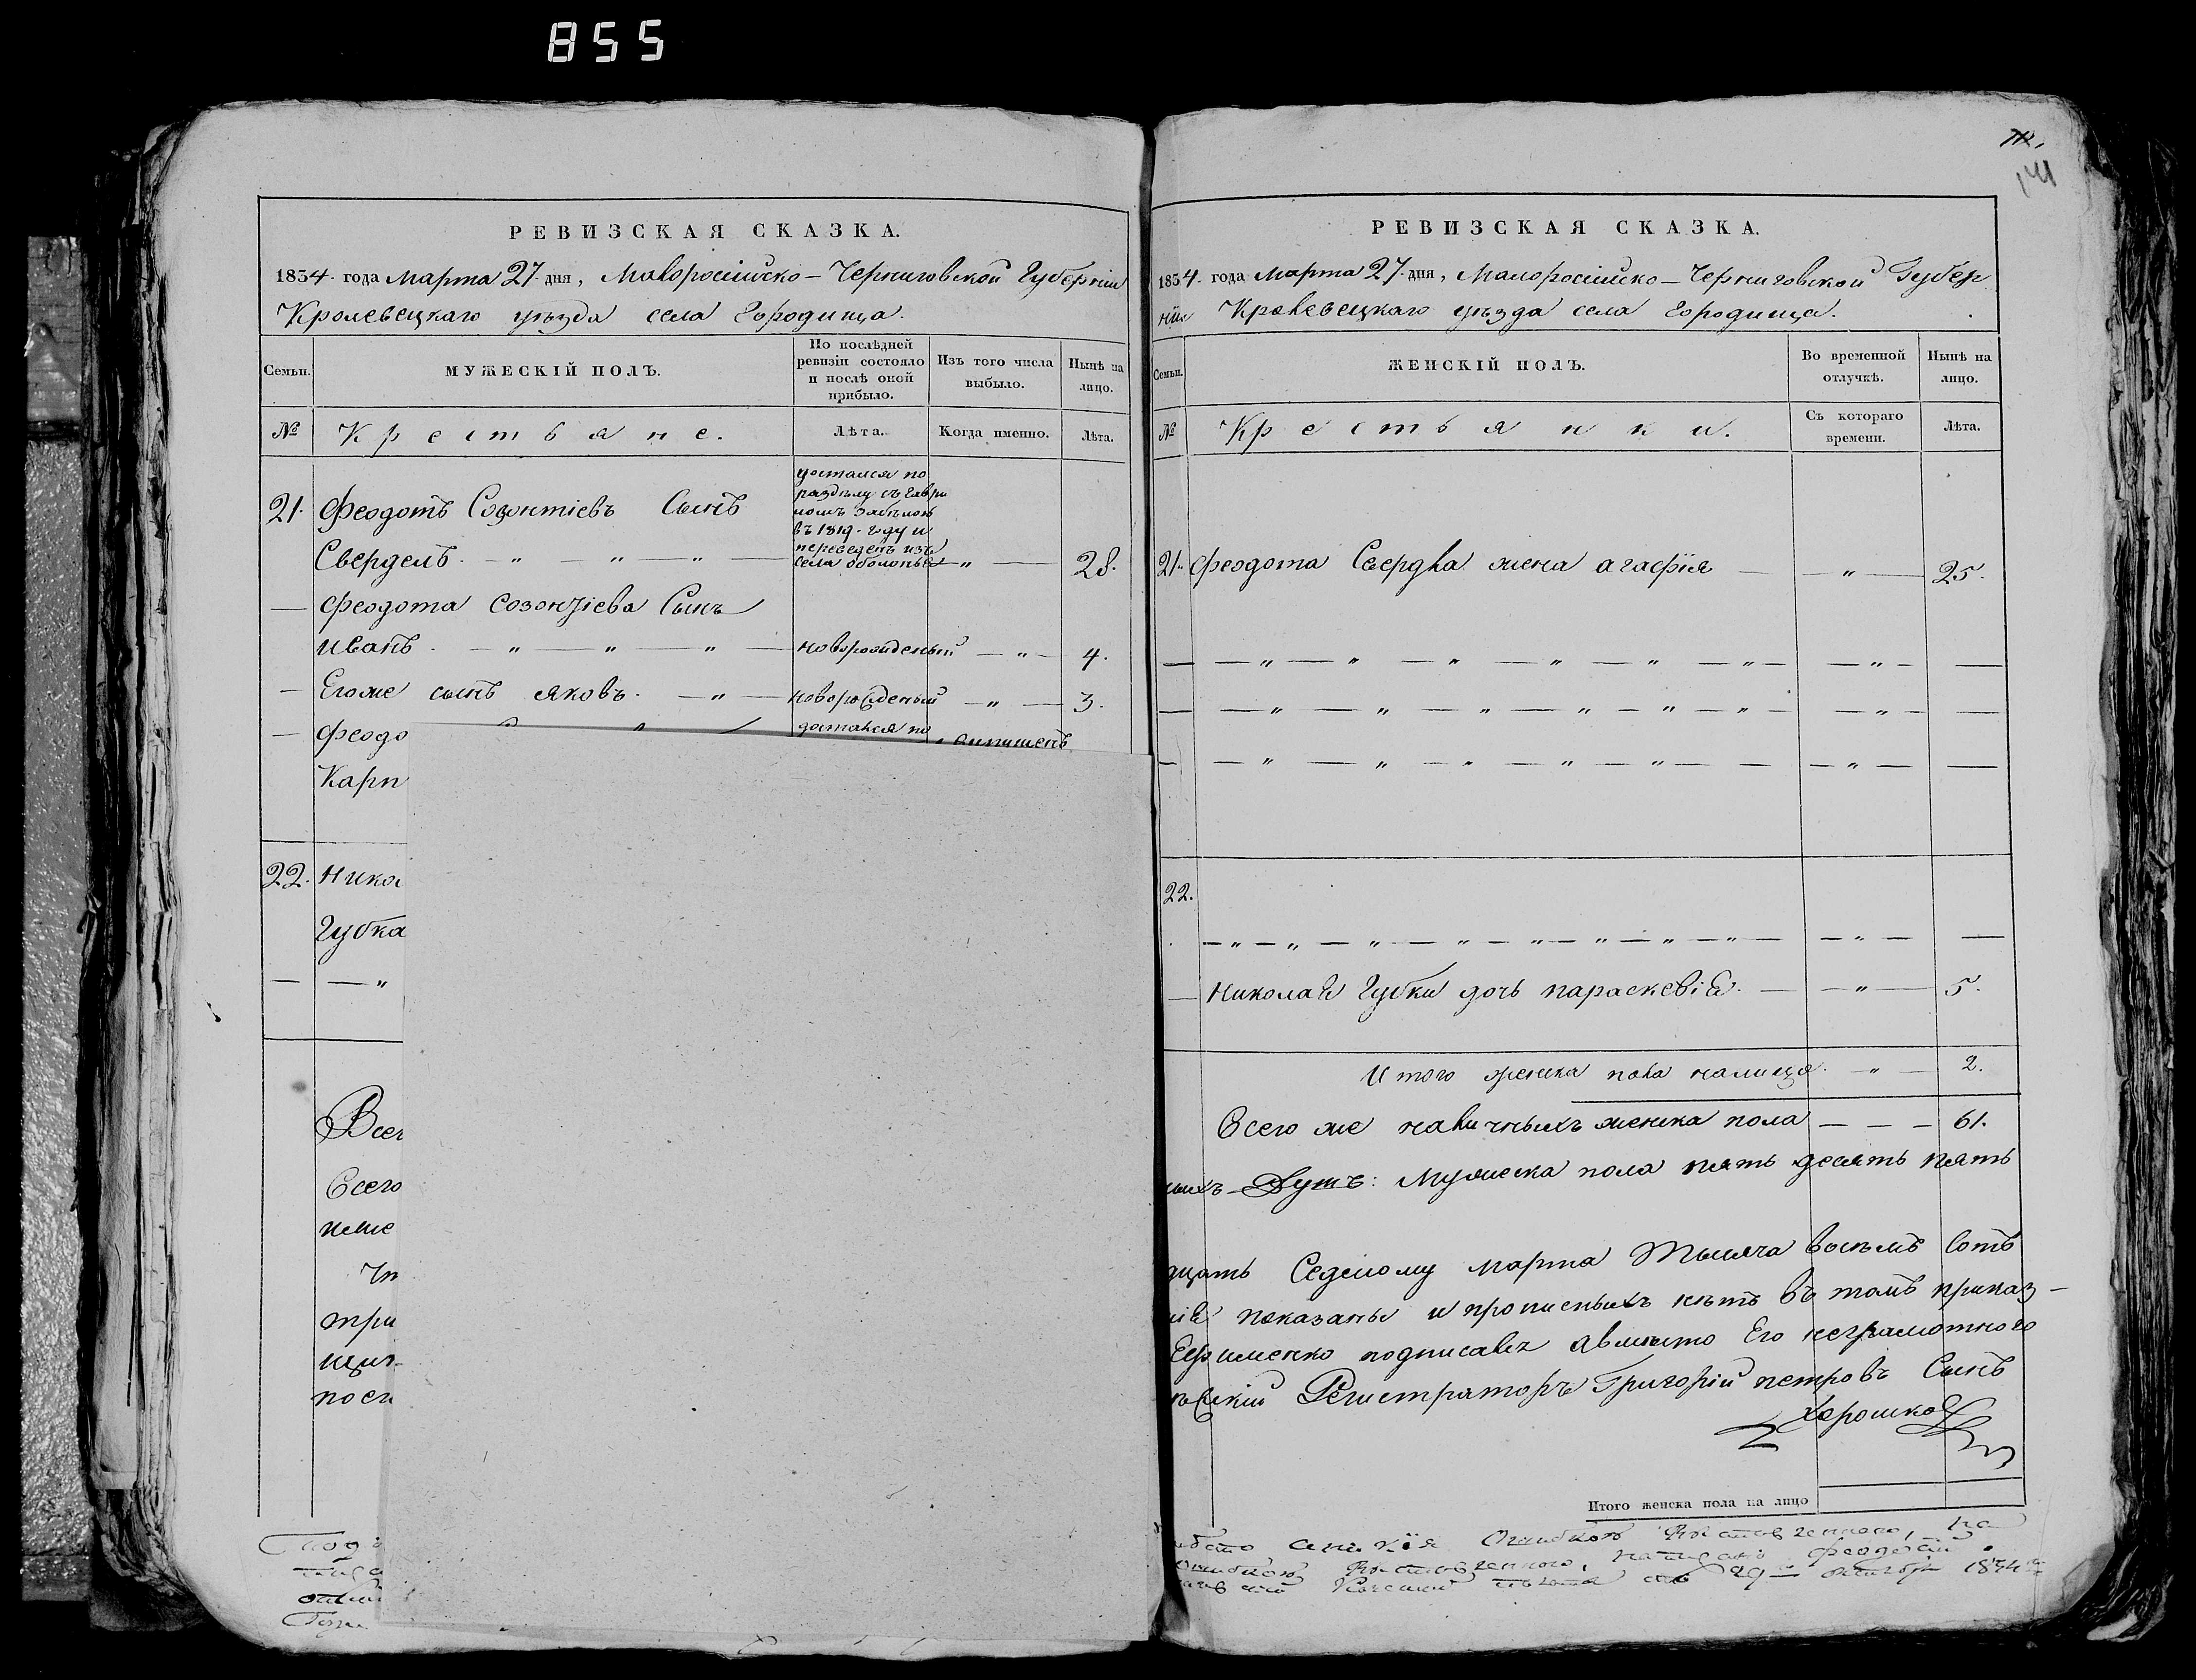 855
141
РЕВИЗСКАЯ СКАЗКА.
1834. года Марта 27. дня, Малоросiйско-Черниговской Губернiи
Кролевецкаго уѣзда села Городища.
Семьи.
МУЖЕСКІЙ ПОЛЪ.
По послѣдней ревизіи состояло и послѣ оной прибыло.
Изъ того числа выбыло.
Нынѣ на лицо.
№
Крестьяне.
Лѣта.
Когда именно.
Лѣта.
достался по
раздѣлу съ Гаври
въ 1819. году и
переведенъ изъ
села оболонья
21. Феодотъ Созонтіевъ Сынъ
Свердель. — " — " — " — — " — 28.
— Феодота Созонтіева Сынъ
Иванъ. — " — " — " — новорожденый — " — 4.
— Егоже сынъ Яковъ. — " — новорожденый — " — 3.
— Феодо
достался по
Карп
22. Нико
Губка
— — "
Всег
Всего
Чт
три
щиг
посн
РЕВИЗСКАЯ СКАЗКА.
1834. года Марта 27. дня, Малоросiйско-Черниговской Губер
нiи Кролевецкаго уѣзда села Городища.
Семьи.
ЖЕНСКІЙ ПОЛЪ.
Во временной отлучкѣ.
Нынѣ на лицо.
№
Крестьянки.
Съ котораго времени.
Лѣта.
21. Феодота Свердла жена Агафія — — " — 25.
— — " — " — " — " — " — " — — " — —
— — " — " — " — " — " — " — — " — —
— — " — " — " — " — " — — — " — —
22.
— " — " — " — " — " — " — " — " — — " — —
— Николая Губки дочь Параскевія. — — " — 5.
Итого женска пола налицо. — " — 2.
Всего же наличныхъ женска пола — — — 61.
ныхъ Душъ: Мужеска пола пять десять пять
дцать Седьмому марта Тысяча восемь сотъ
показаны и прописныхъ нѣтъ въ томъ приказ-
Ефименко подписавъ авмѣсто Его неграмотного
Регистраторъ Григорій петровъ Сынъ
Хорошко
Итого женска пола на лицо